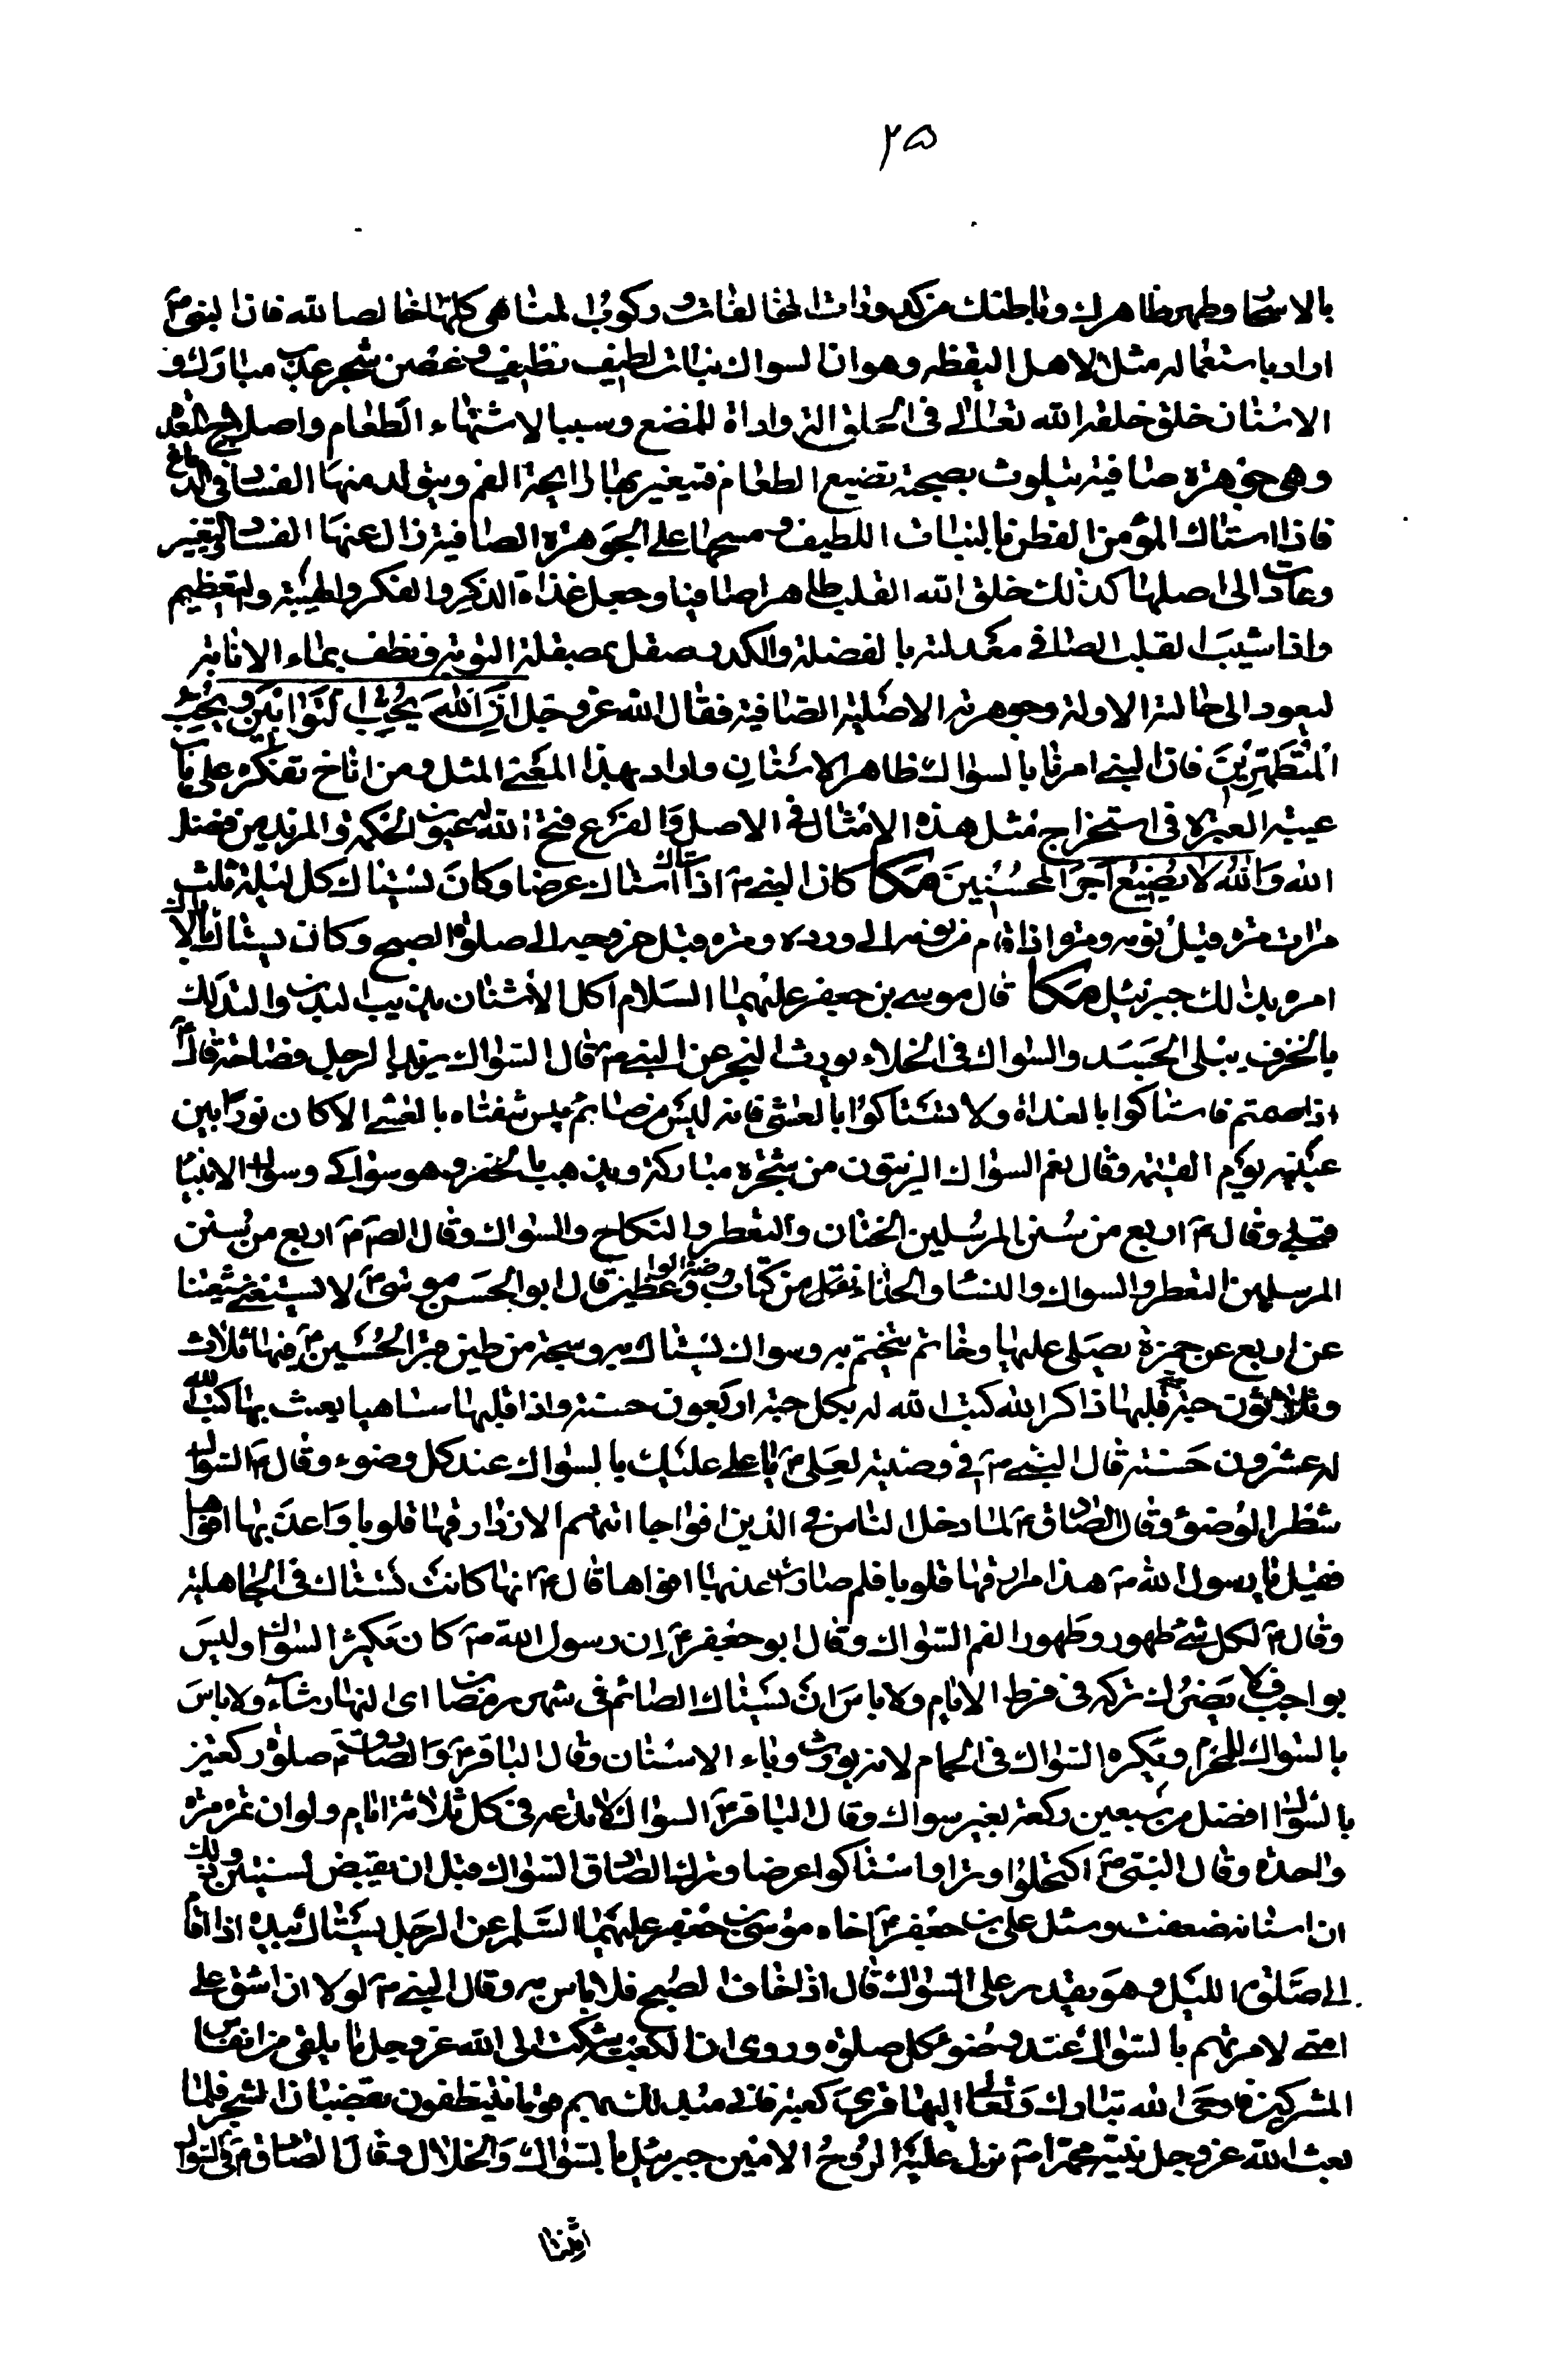 ٢۵
بالاسحار وطهر ظاهرك وباطنك من كدورات المخالفات وركوب المناهي كلها خالصا لله فان النبي ص
اراد باستعماله مثلا لاهل اليقظه وهو ان السواك نبات لطيف نظيف وغصن شجر عذب مبارك و
الاسنان خلق خلقه الله تعالى في الحلق الة واداة للمضغ وسببا لاشتهاء الطعام واصلاح المعدة
وهي جوهرة صافية تتلوث بصحبة تمضيغ الطعام فتتغير بها رايحة الفم ويتولد منها الفساد في الدماغ
فاذا استاك المؤمن الفطن بالنبات اللطيف ومسحها على الجوهرة الصافية زال عنها الفساد والتغيير
وعادت الى اصلها كذلك خلق الله القلب طاهرا صافيا وجعل غذاة الذكر والفكر والهيبة والتعظيم
واذا شيب القلب الصافي معدلته بالغفلة والكدر صقل بمصقلة التوبة ونظف بماء الانابة
ليعود الى حالته الاولة وجوهرته الاصلية الصافية فقال الله عز وجل ان الله يحب التوابين ويحب
المتطهرين فان النبي امرنا بالسواك ظاهر الاسنان واراد بهذا المعنى المثل ومن اناخ تفكره على باب
عيبة العبرة في استخراج مثل هذه الامثال في الاصل والفرع فتح الله له عيون الحكمة والمزيد من فضل
الله والله لا يضيع اجر المحسنين مكا كان النبي ص اذا استاك استاك عرضا وكان يستاك كل ليلة ثلث
مرات مرة قبل نومه ومرة اذا قام من نومه الى ورده ومرة قبل خروجه الى صلوة الصبح وكان يستاك بالاراك
امره بذلك جبرئيل مكا قال موسى بن جعفر عليهما السلام اكل الاشنان يذيب البدن والتدلك
بالخزف يبلى الجسد والسواك في الخلاء يورث البخر عن النبي ص قال السواك يزيد الرجل فصاحة قال ص
اذا صمتم فاستاكوا بالغداة ولا تستاكوا بالعشي فانه ليس من صائم ييبس شفتاه بالعشي الا كان نورا بين
عينيه يوم القيمة وقال نعم السواك الزيتون من شجرة مباركة ويذهب بالحفر وهو سواكي وسواك الانبيا
قبلي وقال ص اربع من سنن المرسلين الختان والتعطر والنكاح والسواك وقال الص م اربع من سنن
المرسلين التعطر والسواك والنساء والحناء نقل من كتاب روضة الواعظين قال ابو الحسن موسى ع لا يستغني شيعتنا
عن اربع عن خمرة يصلى عليها وخاتم يتختم به وسواك يستاك به وسبحة من طين قبر الحسين ع فيها ثلاث
وثلاثون حبة متى قلبها ذاكرا لله كتب الله له بكل حبة اربعون حسنة واذا قلبها ساهيا يعبث بها كتب الله
له عشرون حسنة قال النبي ص في وصيته لعلي ع يا علي عليك بالسواك عند كل وضوء وقال ع السواك
شطر الوضوء وقال الصادق ع لما دخل الناس في الدين افواجا اتتهم الازد ارقها قلوبا واعذبها افواها
فقيل يا رسول الله ص هذا ارقها قلوبا فلم صارت اعذبها افواها قال ع انها كانت تستاك في الجاهلية
وقال ع لكل شئ طهور وطهور الفم السواك وقال ابو جعفر ع ان رسول الله ص كان يكثر السواك وليس
بواجب فلا يضرك تركه في فرط الايام ولا باس ان يستاك الصائم في شهر رمضان اى النهار شاء ولا باس
بالسواك للمحرم ويكره السواك في الحمام لانه يورث وباء الاسنان وقال الباقر ع والصادق ع صلوة ركعتين
بالسواك افضل من سبعين ركعة بغير سواك وقال الباقر ع السواك لا تدعه في كل ثلاثة ايام ولو ان تمره مرة
واحدة وقال النبي ص اكتحلوا وترا واستاكوا عرضا وترك الصادق السواك قبل ان يقبض لسنتين وذلك
ان اسنانه ضعفت وسئل علي بن جعفر ع اخاه موسى بن جعفر عليهما السلم عن الرجل يستاك بيده اذا قام
الى صلوة الليل وهو يقدر على السواك قال اذا خاف الصبح فلا باس به وقال النبي ص لولا ان اشق على
امتي لامرتهم بالسواك عند وضوء كل صلوة وروى ان الكعبة شكت الى الله عز وجل ما يلقى من انفاس
المشركين فاوحى الله تبارك وتعالى اليها قري كعبة فاني مبدلك بهم قوما يتنظفون بقضبان الشجر فلما
بعث الله عز وجل نبيه محمدا ص نزل عليه الروح الامين جبرئيل بالسواك والخلال وقال الصادق ع في السواك
اثنا